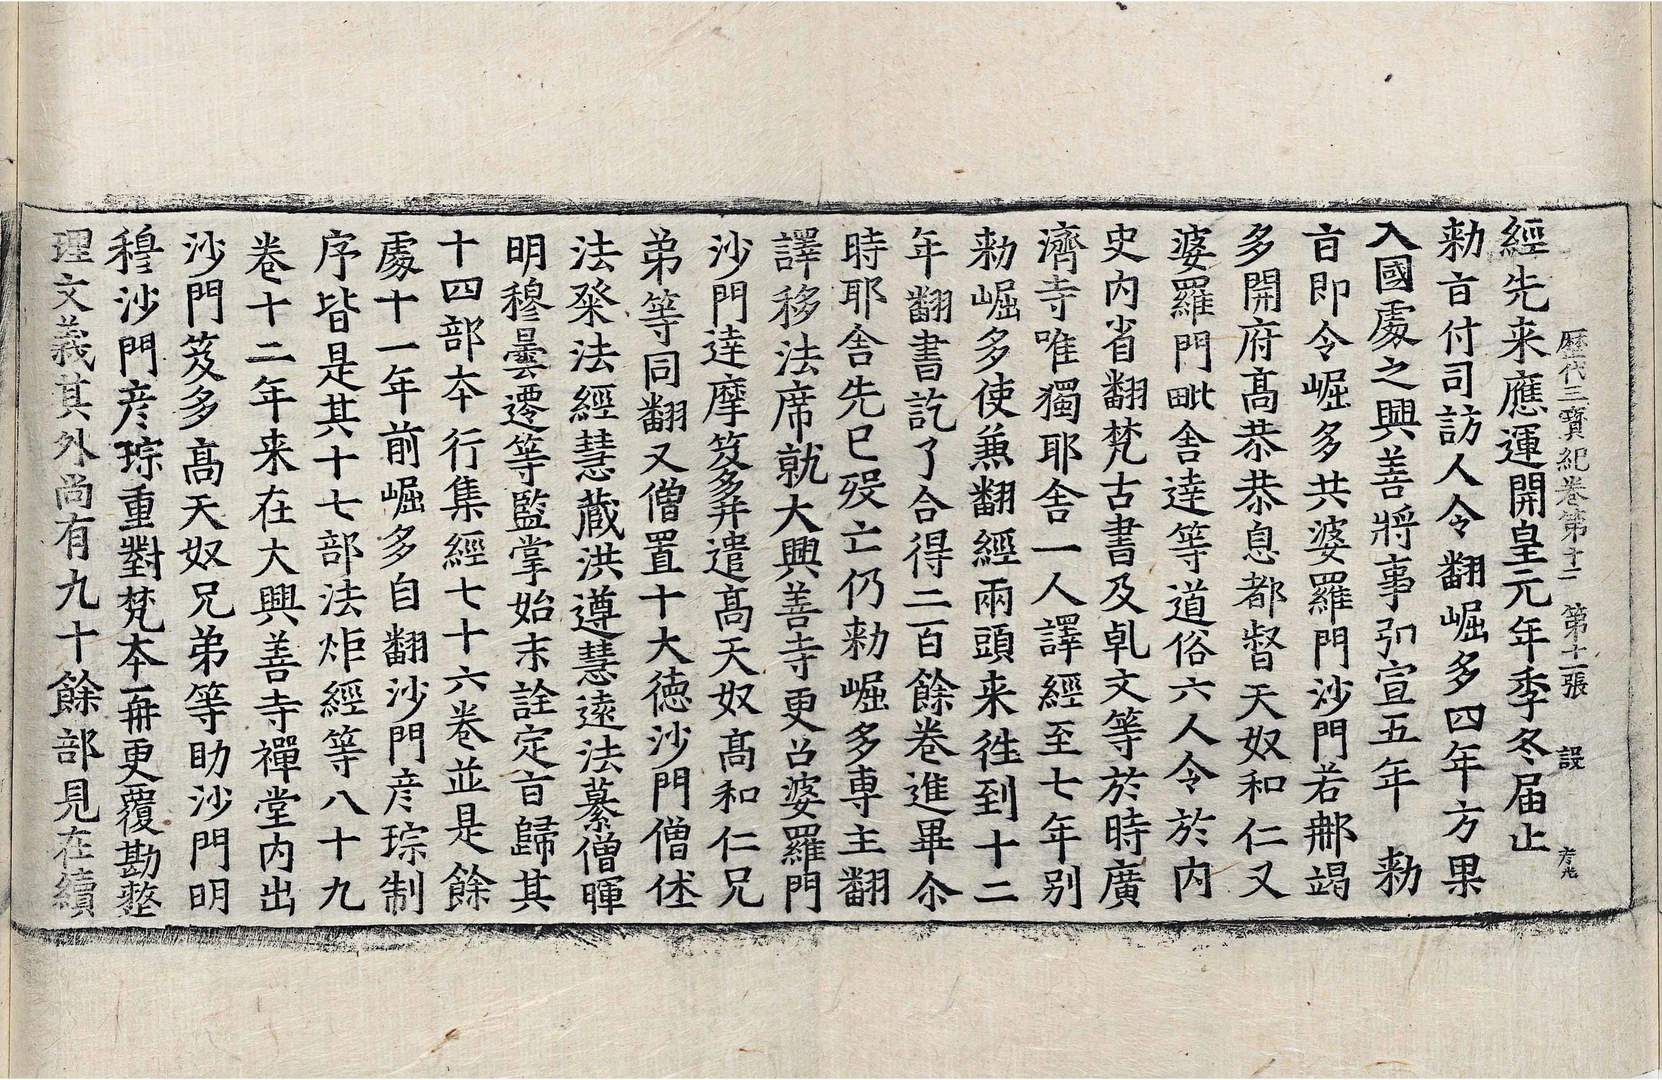 歷代三寶紀卷第十二 第十一張 設
經先来應運開皇元年季冬届止
勑㫖付司訪人令翻崛多四年方果
入國處之興善將事弘宣五年 勑
㫖即令崛多共婆羅門沙門若那竭
多開府髙恭恭息都督天奴和仁又
婆羅門毗舍達等道俗六人令於内
史内省翻梵古書及乹文等於時廣
濟寺唯獨耶舍一人譯經至七年别
勑崛多使兼翻經兩頭来往到十二
年翻書訖了合得二百餘卷進畢尒
時耶舍先已殁亡仍勑崛多専主翻
譯移法席就大興善寺更召婆羅門
沙門達摩笈多并遣髙天奴髙和仁兄
弟等同翻又僧置十大徳沙門僧休
法粲法經慧藏洪遵慧遠法纂僧暉
明穆曇遷等監掌始末詮定㫖歸其
十四部夲行集經七十六卷並是餘
處十一年前崛多自翻沙門彦琮制
序皆是其十七部法炬經等八十九
卷十二年来在大興善寺禪堂内出
沙門笈多髙天奴兄弟等助沙門明
穆沙門彦琮重對梵夲一再更覆勘整
理文義其外尚有九十餘部見在續